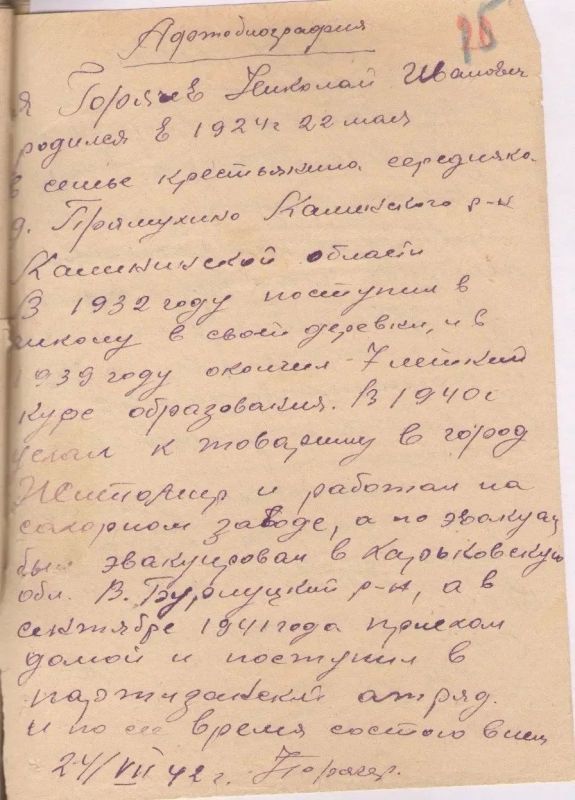 Автобиография
25
я Горячев Николай Иванович
родился в 1924 г 22 мая
в семье крестьянина середняка
д. Прямухино Каменского р-н
Калининской области
В 1932 году поступил в
школу в своей деревни, и в
1939 году окончил 7 летний
курс образования. В 1940 г
уехал к товарищу в город
Житомир и работал на
сахарном заводе, а по эвакуац
был эвакуирован в Харьковскую
обл. В. Бурлуцкий р-н, а в
сентябре 1941 года приехал
домой и поступил в
партизанский атряд.
и по се время состою в нем
24/VII 42 г.